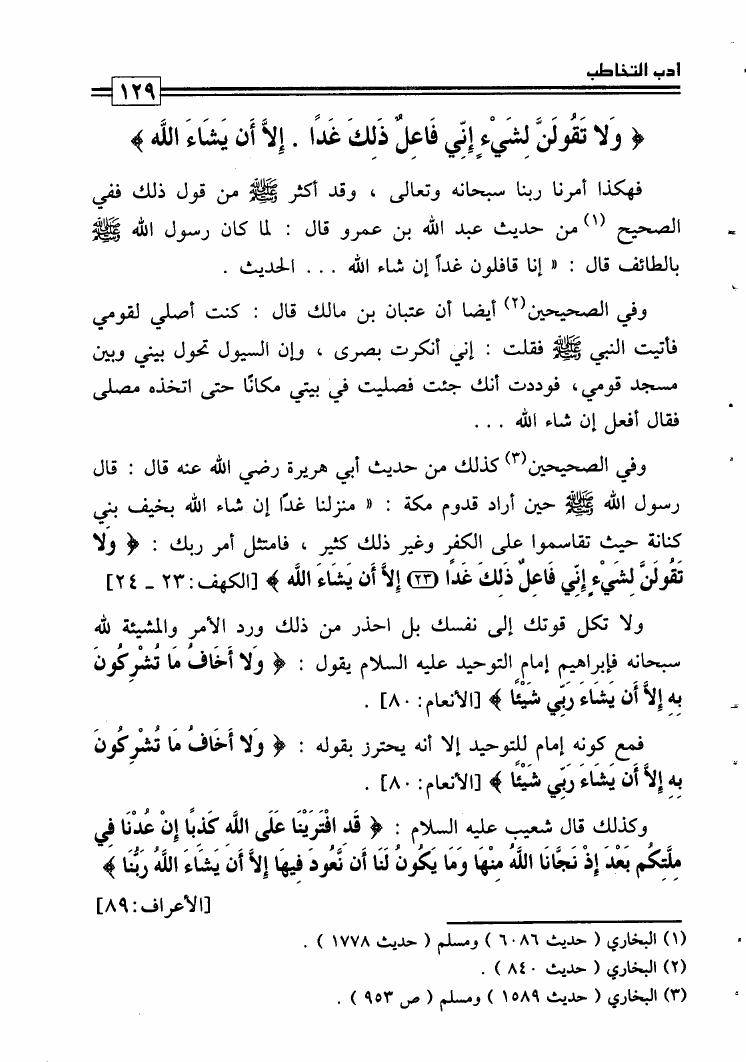 أدب التخاطب
١٢٩
﴿ وَلا تَقُولَنَّ لِشَيْءٍ إِنِّي فَاعِلٌ ذَلِكَ غَدًا . إِلاَّ أَن يَشَاءَ اللَّه ﴾
فهكذا أمرنا ربنا سبحانه وتعالى ، وقد أكثر ﷺ من قول ذلك ففي
الصحيح (١) من حديث عبد الله بن عمرو قال : لما كان رسول الله ﷺ
بالطائف قال : « إنا قافلون غداً إن شاء الله ... الحديث .
وفي الصحيحين(٢) أيضا أن عتبان بن مالك قال : كنت أصلي لقومي
فأتيت النبي ﷺ فقلت : إني أنكرت بصرى ، وإن السيول تحول بيني وبين
مسجد قومي، فوددت أنك جئت فصليت في بيتي مكانًا حتى اتخذه مصلى
فقال أفعل إن شاء الله ...
وفي الصحيحين(٣) كذلك من حديث أبي هريرة رضي الله عنه قال : قال
رسول الله ﷺ حين أراد قدوم مكة : « منزلنا غدًا إن شاء الله بخيف بني
كنانة حيث تقاسموا على الكفر وغير ذلك كثير ، فامتثل أمر ربك : ﴿ وَلا
تَقُولَنَّ لِشَيْءٍ إِنِّي فَاعِلٌ ذَلِكَ غَدًا (٢٣) إِلاَّ أَن يَشَاءَ اللَّه ﴾ [الكهف: ٢٣ ـ ٢٤]
ولا تكل قوتك إلى نفسك بل احذر من ذلك ورد الأمر والمشيئة لله
سبحانه فإبراهيم إمام التوحيد عليه السلام يقول : ﴿ وَلا أَخَافُ مَا تُشْرِكُونَ
بِهِ إِلاَّ أَن يَشَاءَ رَبِّي شَيْئًا ﴾ [الأنعام: ٨٠] .
فمع كونه إمام للتوحيد إلا أنه يحترز بقوله : ﴿ وَلا أَخَافُ مَا تُشْرِكُونَ
بِهِ إِلاَّ أَن يَشَاءَ رَبِّي شَيْئًا ﴾ [الأنعام: ٨٠] .
وكذلك قال شعيب عليه السلام : ﴿ قَدِ افْتَرَيْنَا عَلَى اللَّهِ كَذِبًا إِنْ عُدْنَا فِي
مِلَّتِكُم بَعْدَ إِذْ نَجَّانَا اللَّهُ مِنْهَا وَمَا يَكُونُ لَنَا أَن نَّعُودَ فِيهَا إِلاَّ أَن يَشَاءَ اللَّهُ رَبُّنَا ﴾
[الأعراف: ٨٩]
(١) البخاري ( حديث ٦٠٨٦ ) ومسلم ( حديث ١٧٧٨ ) .
(٢) البخاري ( حديث ٨٤٠ ) .
(٣) البخاري ( حديث ١٥٨٩ ) ومسلم ( ص ٩٥٣ ) .